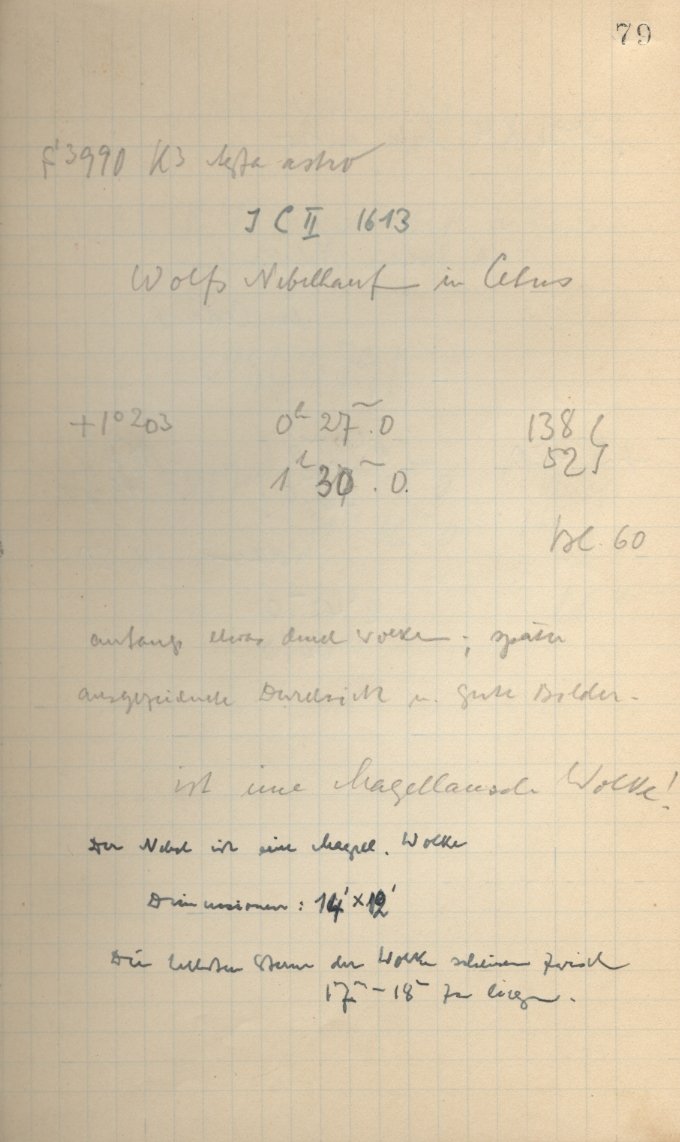 79
f' 3990 K3 Agfa astro
I C II 1613
Wolfs Nebelhauf in Cetus
+1° 203 0h 27m.0 138
1h 30m.0. 52
Bl. 60
anfangs etwas durch Wolken; später
ausgezeichnete Durchsicht u. gute Bilder.
ist eine Magellansche Wolke!
Der Nebel ist eine Magell. Wolke
Dimensionen: 14' × 12'
Die hellsten Sterne der Wolke scheinen zwisch
17m – 18m zu liegen.